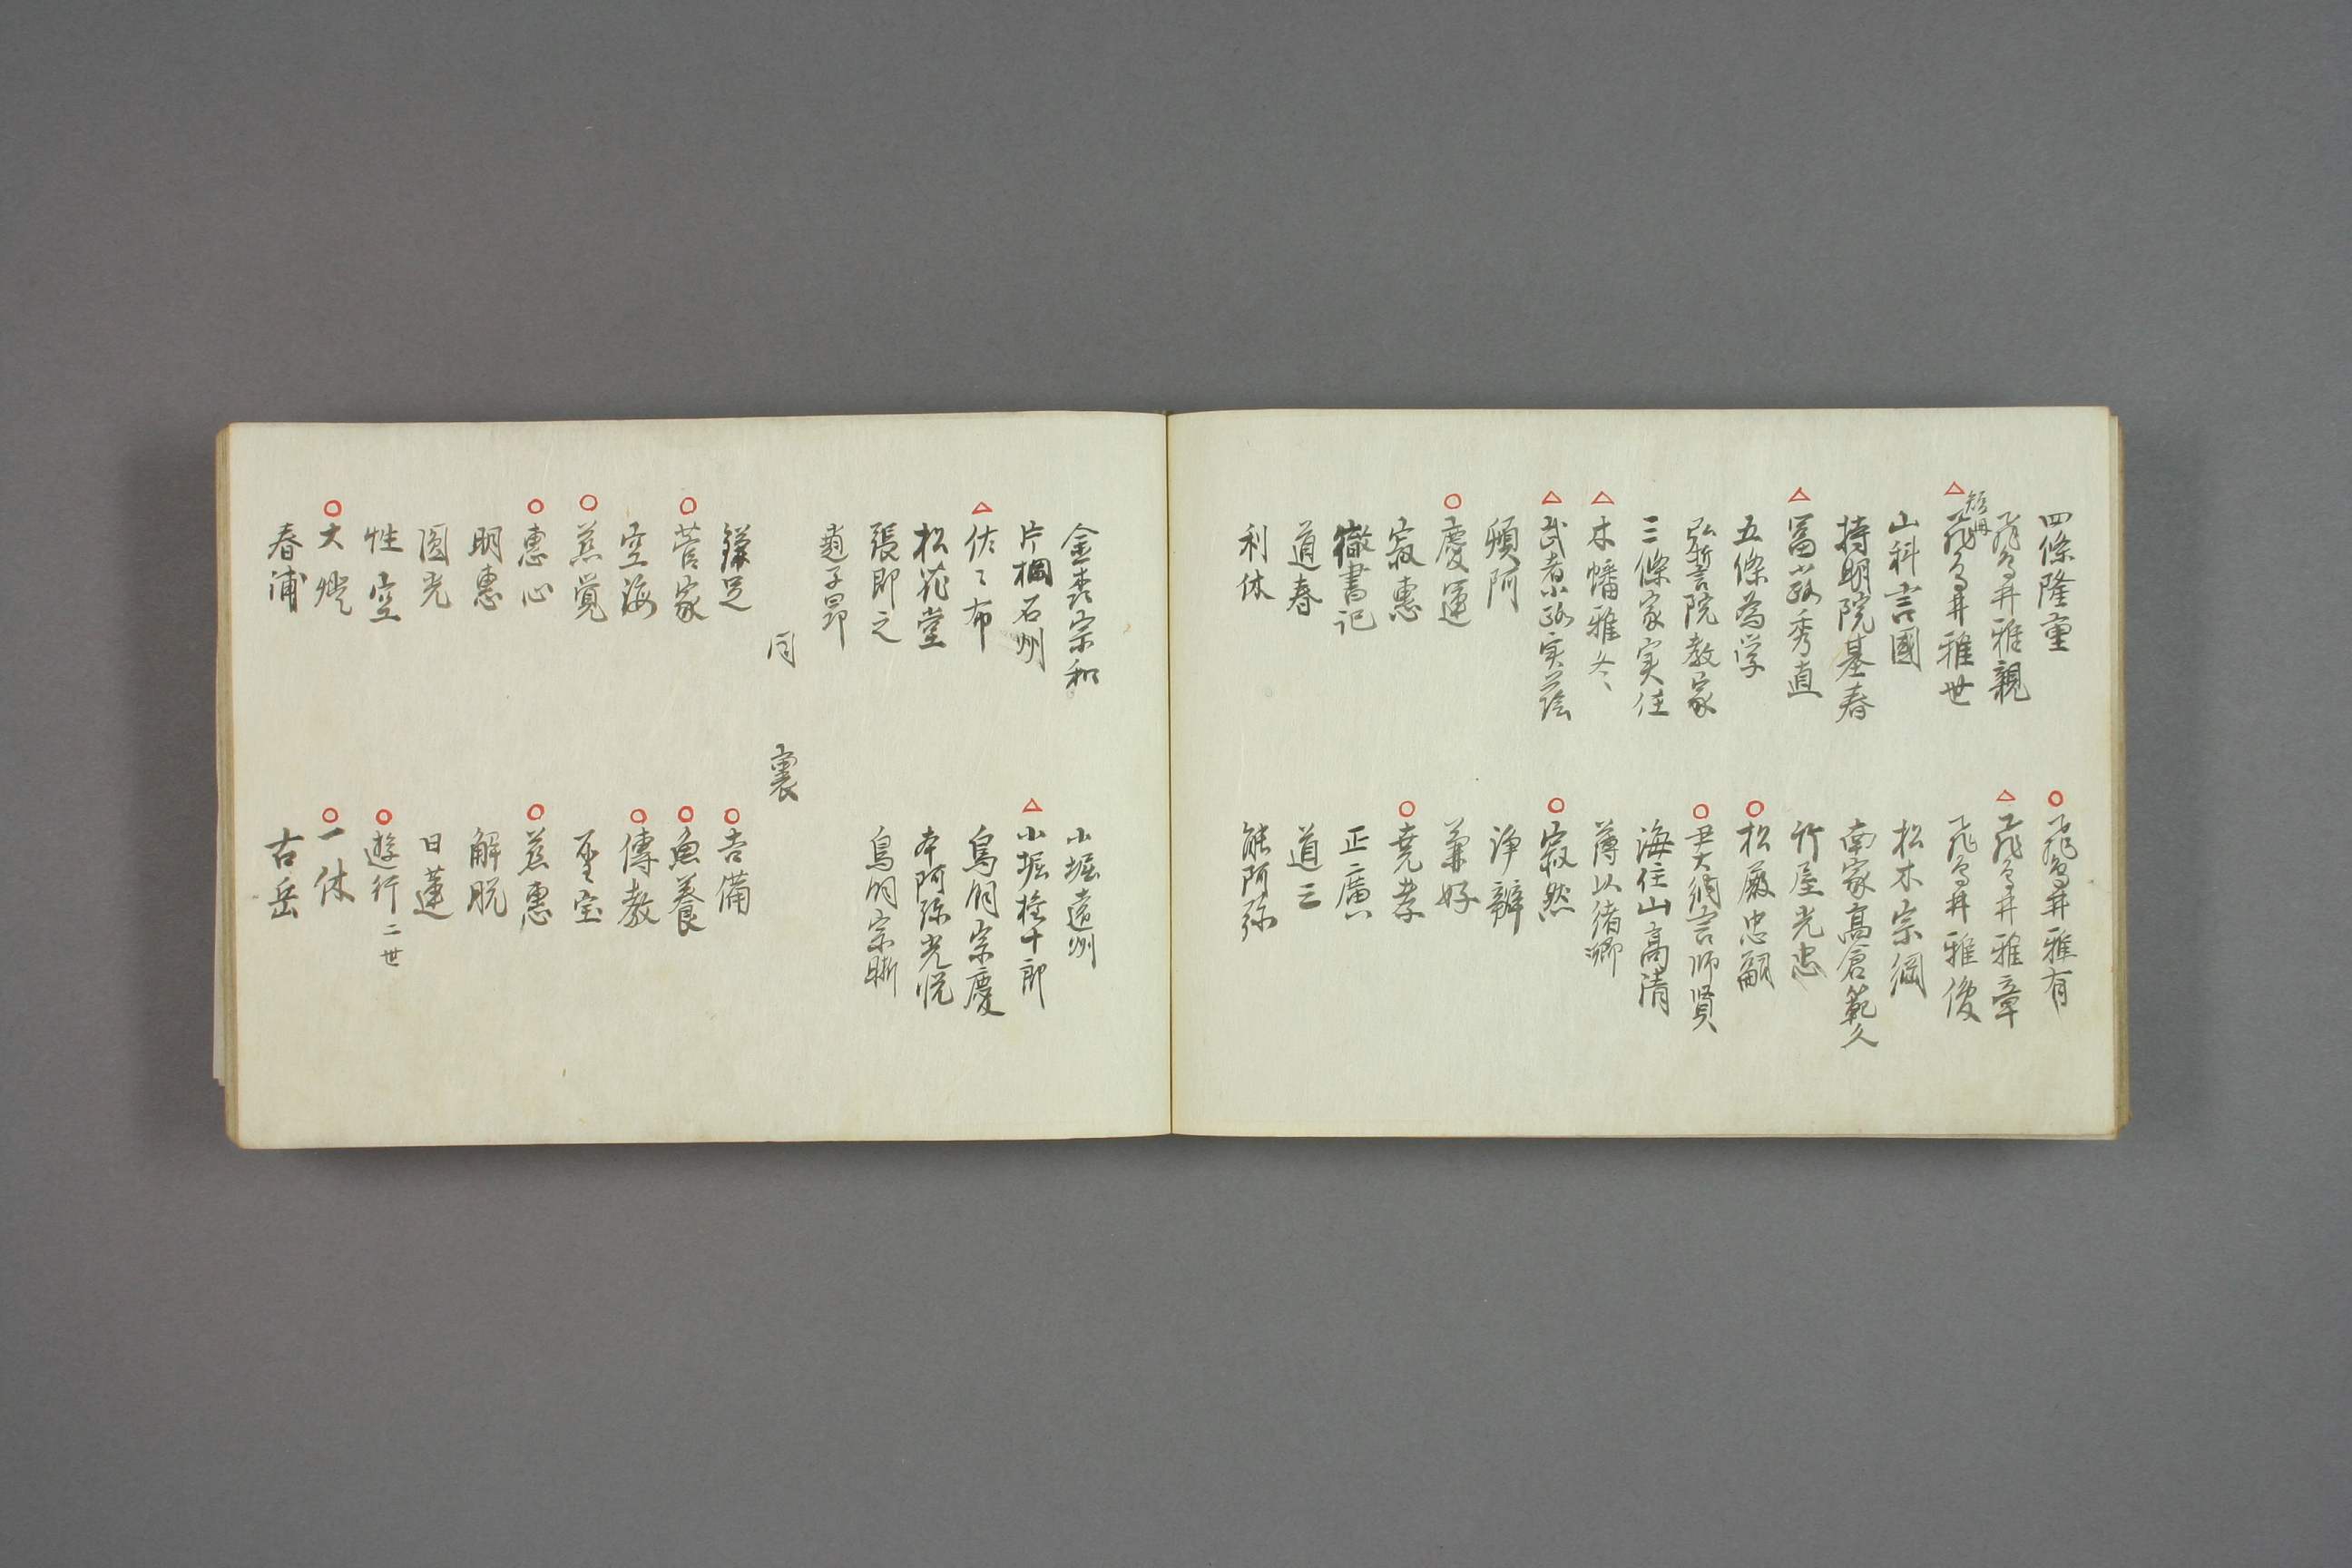 四條隆重
○飛鳥井雅有
飛鳥井雅親
△飛鳥井雅章
△短冊飛鳥井雅世
飛鳥井雅俊
山科言國
松木宗綱
持明院基春
南家高倉範久
△冨小路秀直
竹屋光忠
五條為学
○松殿忠嗣
弘誓院教家
○尹大納言師賢
三條家実任
海住山高清
△木幡雅冬
薄以緒卿
△武者小路実蔭
○寂然
頓阿
浄辨
○慶運
兼好
寂惠
○堯孝
徹書記
正廣
道春
道三
利休
能阿弥
金森宗和
小堀遠州
片桐石州
△小堀権十郎
△佐々布
烏丸宗慶
松花堂
本阿弥光悦
張即之
烏丸宗晰
趙子昂
同 裏
鎌足
○吉備
○菅家
○魚養
空海
○傳教
○慈覚
聖宝
○惠心
○慈惠
明惠
解脱
圓光
日蓮
性空
○遊行二世
○大燈
○一休
春浦
古岳